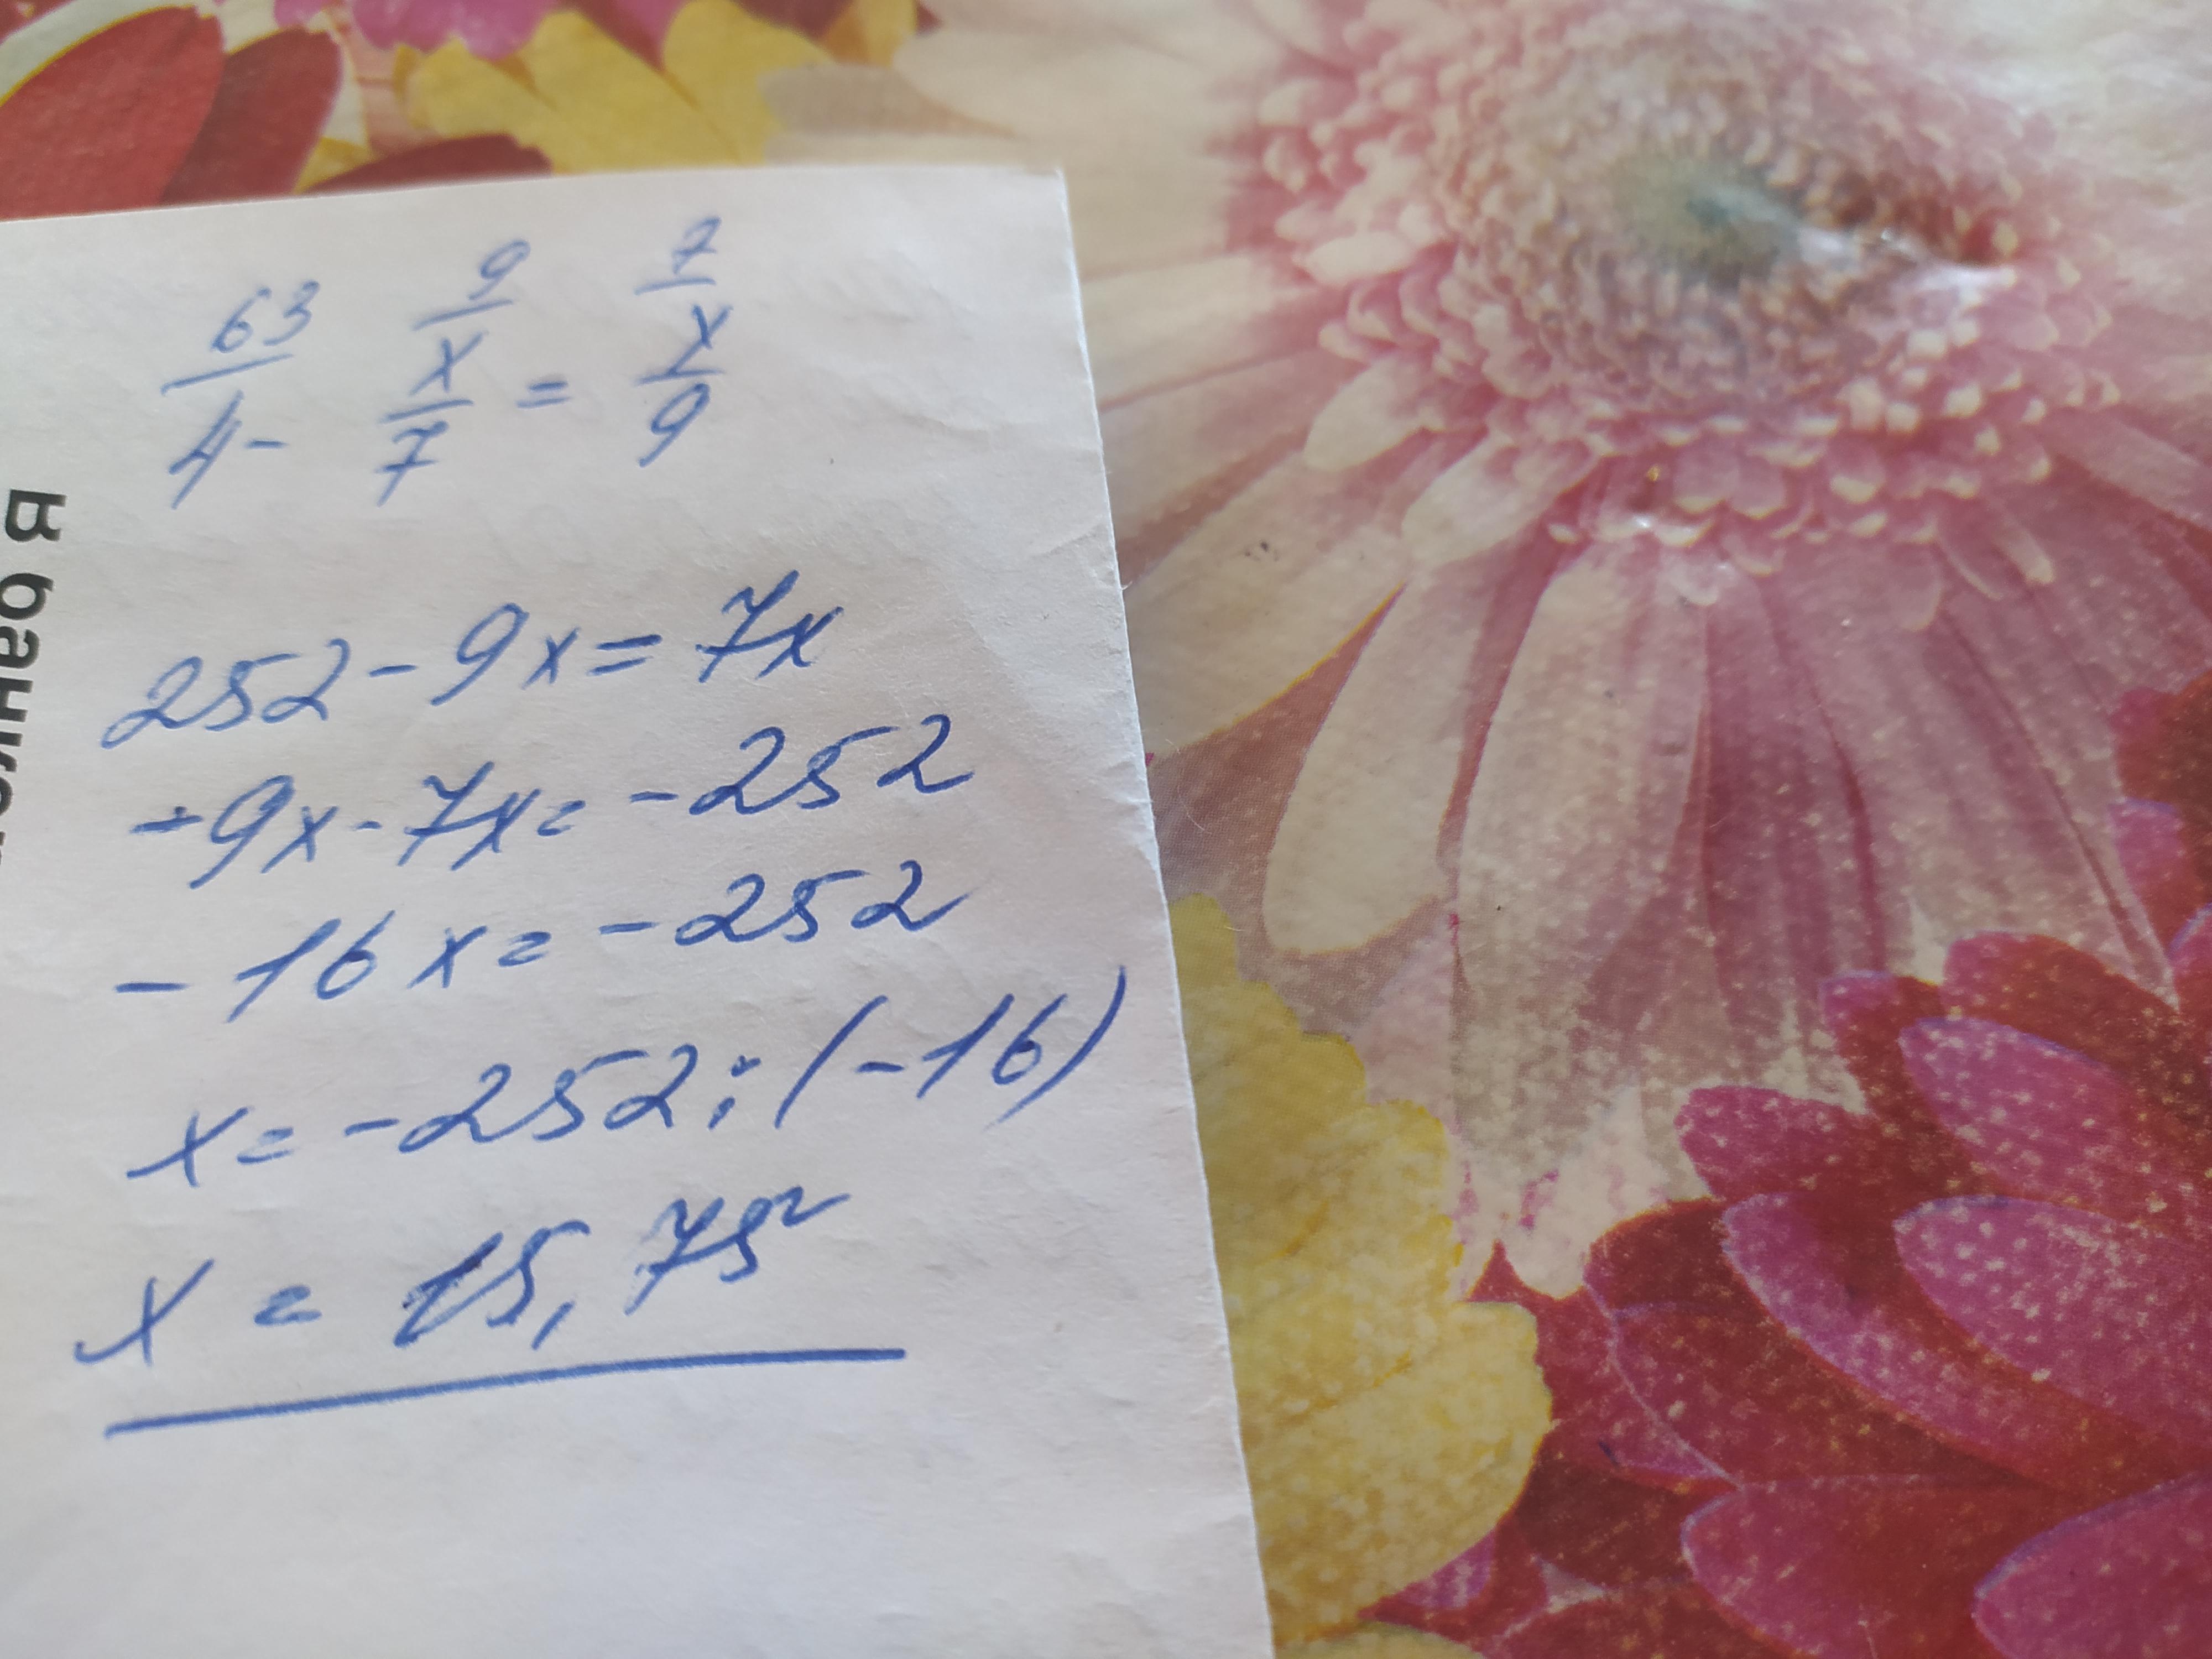 63/4 - 9/x/7 = 7/x/9
252 - 9x = 7x
-9x - 7x = -252
-16x = -252
x = -252 : (-16)
x = 15,75
В